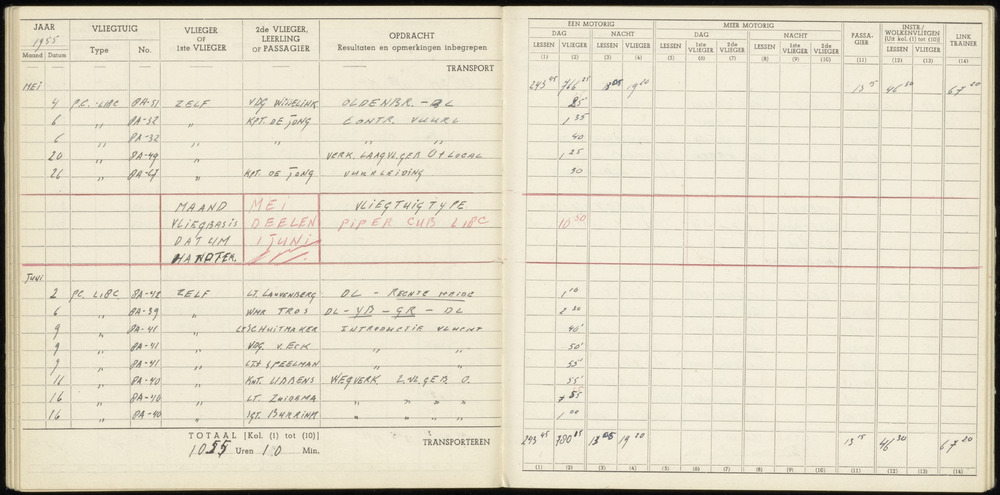 JAAR VLIEGTUIG VLIEGER of 1ste VLIEGER 2de VLIEGER, LEERLING of PASSAGIER OPDRACHT
1955 Resultaten en opmerkingen inbegrepen
Maand Datum Type No.
TRANSPORT
MEI
4 P.C. L18C 8A-51 ZELF VDG OLDENBR. - DL
6 ,, 8A-32 ,, KPT. DE JONG CONTR. VUURL
6 ,, 8A-32 ,, ,, ,,
20 ,, 8A-49 ,, VERK. LAAGVL.GEB. O + LOCAL
26 ,, 8A-47 ,, KPT. DE JONG VUURLEIDING
MAAND MEI VLIEGTUIGTYPE
VLIEGBASIS DEELEN PIPER CUB L18C
DATUM 1 JUNI
HANDTEK.
JUNI
2 PC. L18C 8A-42 ZELF LT. LAUVENBERG DL - RECHTE HEIDE
6 ,, 8A-39 ,, WMR TROS DL - YB - GR - DL
9 ,, 8A-41 ,, SCHUITMAKER INTRODUCTIE VLUCHT
9 ,, 8A-41 ,, VDG. V. ECK ,, ,,
9 ,, 8A-41 ,, SPEELMAN ,, ,,
16 ,, 8A-40 ,, LUBBENS WEGVERK L.VL.GEB O.
16 ,, 8A-40 ,, LT. ZUIDEMA ,, ,, ,,
16 ,, 8A-40 ,, SGT. BUURINK ,, ,, ,,
TOTAAL [Kol. (1) tot (10)] TRANSPORTEREN
1055 Uren 10 Min.
EEN MOTORIG MEER MOTORIG PASSA-GIER INSTR./WOLKENVLIEGEN [Uit kol. (1) tot (10)] LINK TRAINER
DAG NACHT DAG NACHT
LESSEN VLIEGER LESSEN VLIEGER LESSEN 1ste VLIEGER 2de VLIEGER LESSEN 1ste VLIEGER 2de VLIEGER LESSEN VLIEGER
(1) (2) (3) (4) (5) (6) (7) (8) (9) (10) (11) (12) (13) (14)
243 45 766 25 13 05 19 20 13 15 46 30 67 20
25
1 35
40
1 25
50
10 50
1 10
2 30
40
50
55
55
55
1 00
243 45 780 05 13 05 19 20 13 15 46 30 67 20
(1) (2) (3) (4) (5) (6) (7) (8) (9) (10) (11) (12) (13) (14)